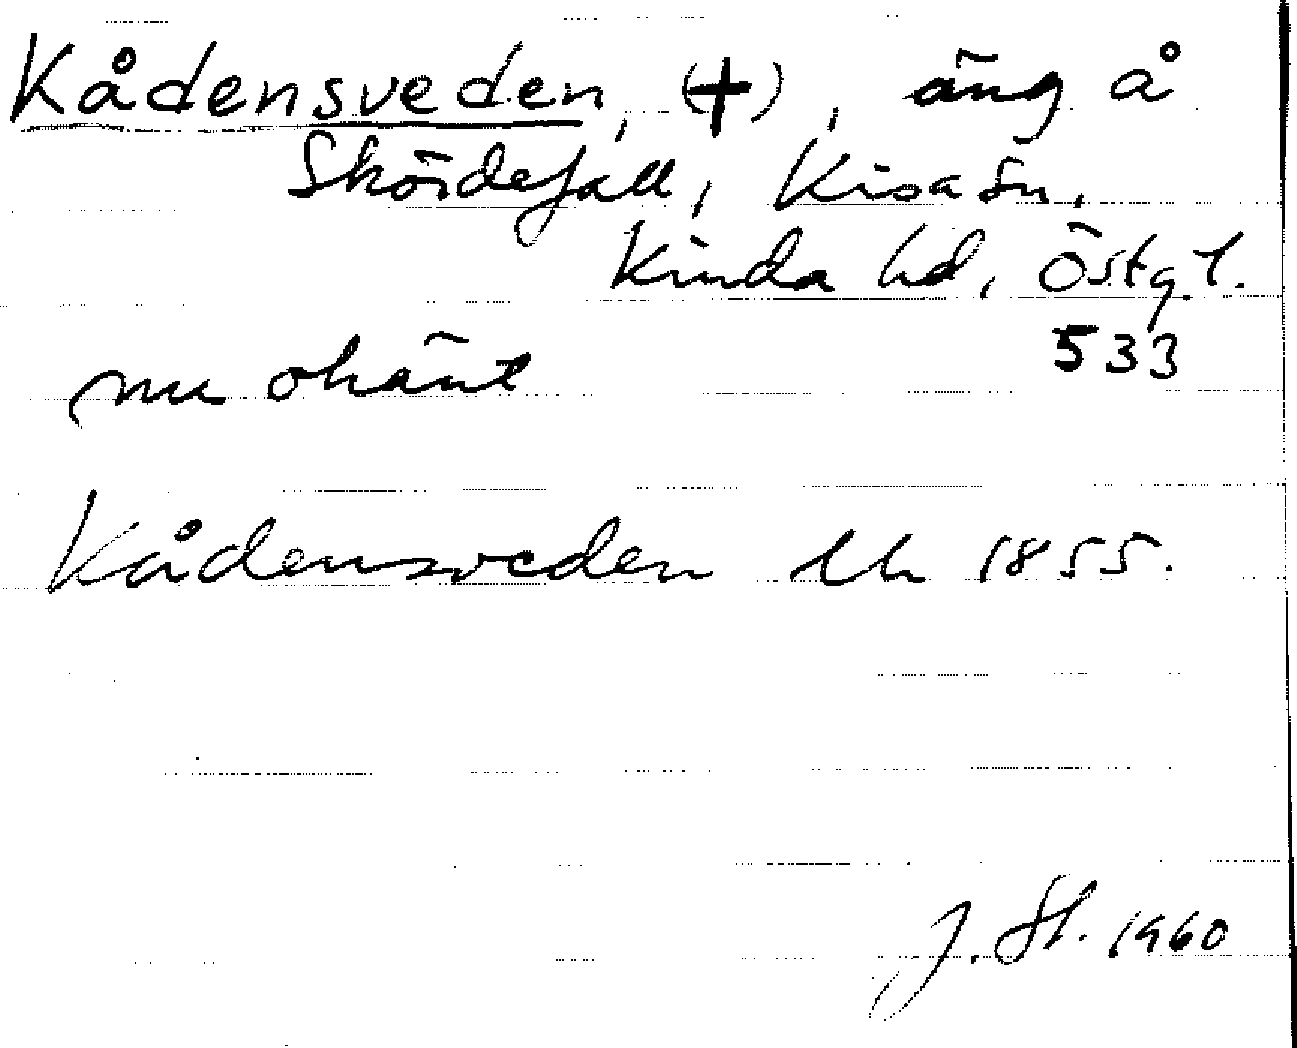 Kådensveden, (+), äng å
Skördefall, Kisa sn,
Kinda hd, Östg.l.
533
nu okänt
Kådensveden Uh 1855.
J. St. 1960